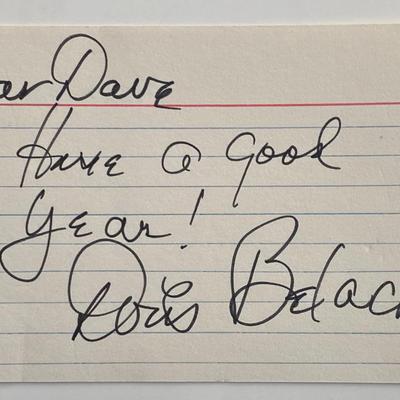 ar Dave
Have a good
year!
Doris Belac